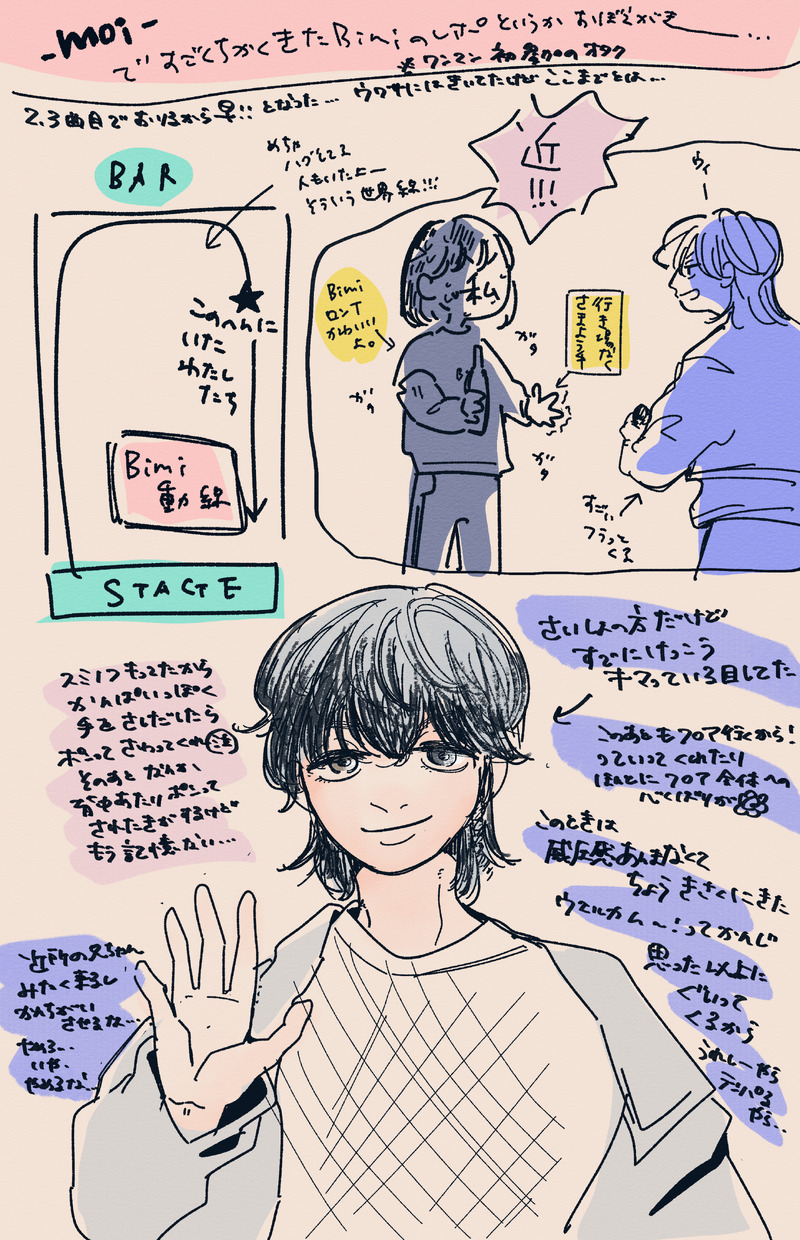 -moi-
ですごくちかくきたBimiのレポというかおぼえがき…
※ワンマン初参加のオタク
2,3曲目でおりるから早!!となった… ウワサにはきいてたけどここまでとは…
BAR
めちゃ
ハグしてる
人もいたよー
そういう世界線!!!
このへんに
いた
わたし
たち
Bimi
動線
STAGE
近
!!!
ウィー
私
Bimi
ロンT
かわいい
よ。
行き場なく
さまよう手
ガタ
ガタ
ガタ
すごい
フラって
くる
さいしょの方だけど
すでにけっこう
キマっている目してた
このあともフロア行くから!
っていってくれたり
ほんとにフロア全体への
心くばりが
このときは
威圧感あんまなくて
ちょうきさくにきた
ウェルカム〜!ってかんじ
思った以上に
ぐいって
くるから
うれしーやら
テンパるやら…
スミノフもってたから
かんぱいっぽく
手をさしだしたら
ポンってさわってくれ(泣)
そのあとなんか
背中あたりポンって
されたきがするけど
もう記憶ない…
近所の兄ちゃん
みたく来るし
かんちがい
させるな…
やめろ…
いや、
やめるな!…